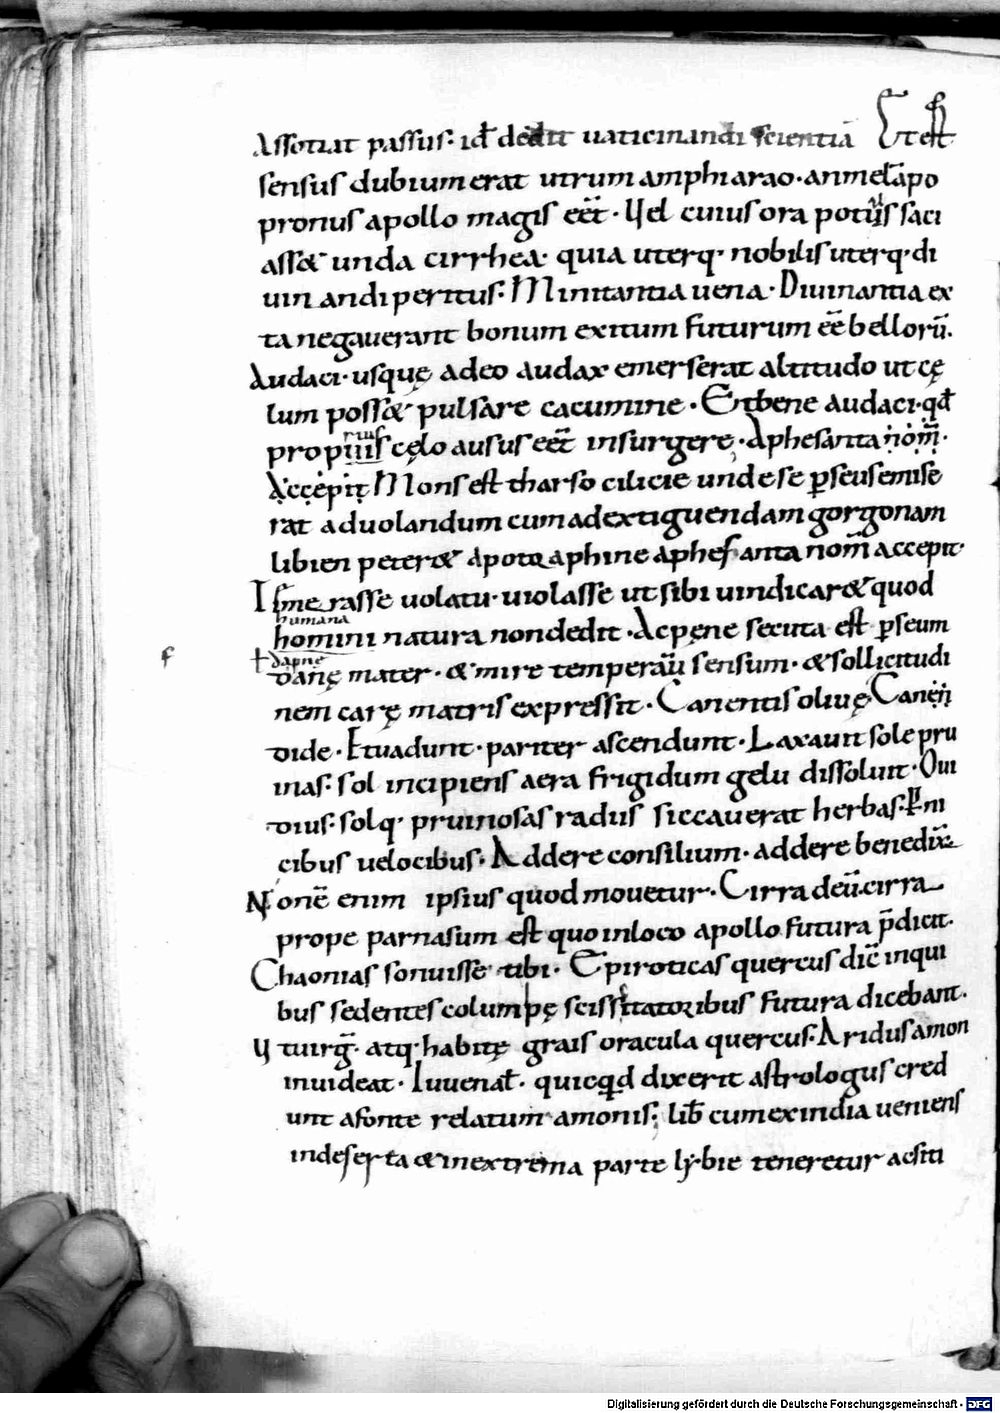 Assotiat passus· id̄ dedit uaticinandi scientiā Et est
sensus dubium erat utrum amphiarao· an melāpo
pronus apollo magis eēt· Vel cuius ora potius saci
ass& unda cirrhea· quia uterq· nobilis uterq· di
uinandi peritus· Minitantia uena· Diuinantia ex
ta negauerant bonum exitum futurum eē belloꝝ̄.
Audaci· usquę adeo audax emerserat altitudo ut cę
lum poss& pulsare cacumine· Et bene audaci· qd̄
propius cęlo ausus eēt insurgere· Aphesanta nom̄·
Accepit Mons est tharso cilicie unde se ꝑseus emise
rat aduolandum cum ad extiguendam gorgonam
libien peter& apotꝛaphine aphesanta nom̄ accepit·
I sme rasse uolatu· uiolasse ut sibi uindicar& quod
humana
homini natura non dedit· Ac pęne secuta est ꝑseum
dapnę
danę mater· & mire temperāū sensum· & sollicitudi
nem carę matris expressit· Canentis oliuę Canen
dide· Euadunt· pariter ascendunt· Laxauit sole pru
inas· sol incipiens aera frigidum gelu dissoluit· Oui
dius· solq· pruinosas radiis siccauerat herbas· ꝑni
cibus uelocibus· Addere consilium· addere benedix̄
Non ē enim ipsius quod mouetur· Cirra deū· cirra
prope parnasum est quo in loco apollo futura p̄dicit·
Chaonias sonuisse tibi· Epiroticas quercus dic̄ inqui
bus sedentes columpę scissitatoribus futura dicebant·
Vt uirḡ· atq· habitę grais oracula quercus· Aridus amon
inuideat· Iuuenal̄· quicqd dixerit astrologus cred
unt afonte relatum amonis· lib̄ cum ex india ueniens
in deserta & in extrema parte lybie teneretur ac siti
f
Digitalisierung gefördert durch die Deutsche Forschungsgemeinschaft - DFG